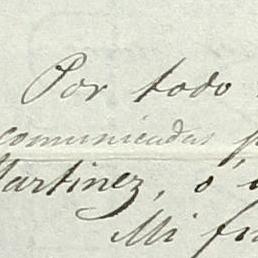 Por todo
comunicadas p
Martinez, ó
Mi fu